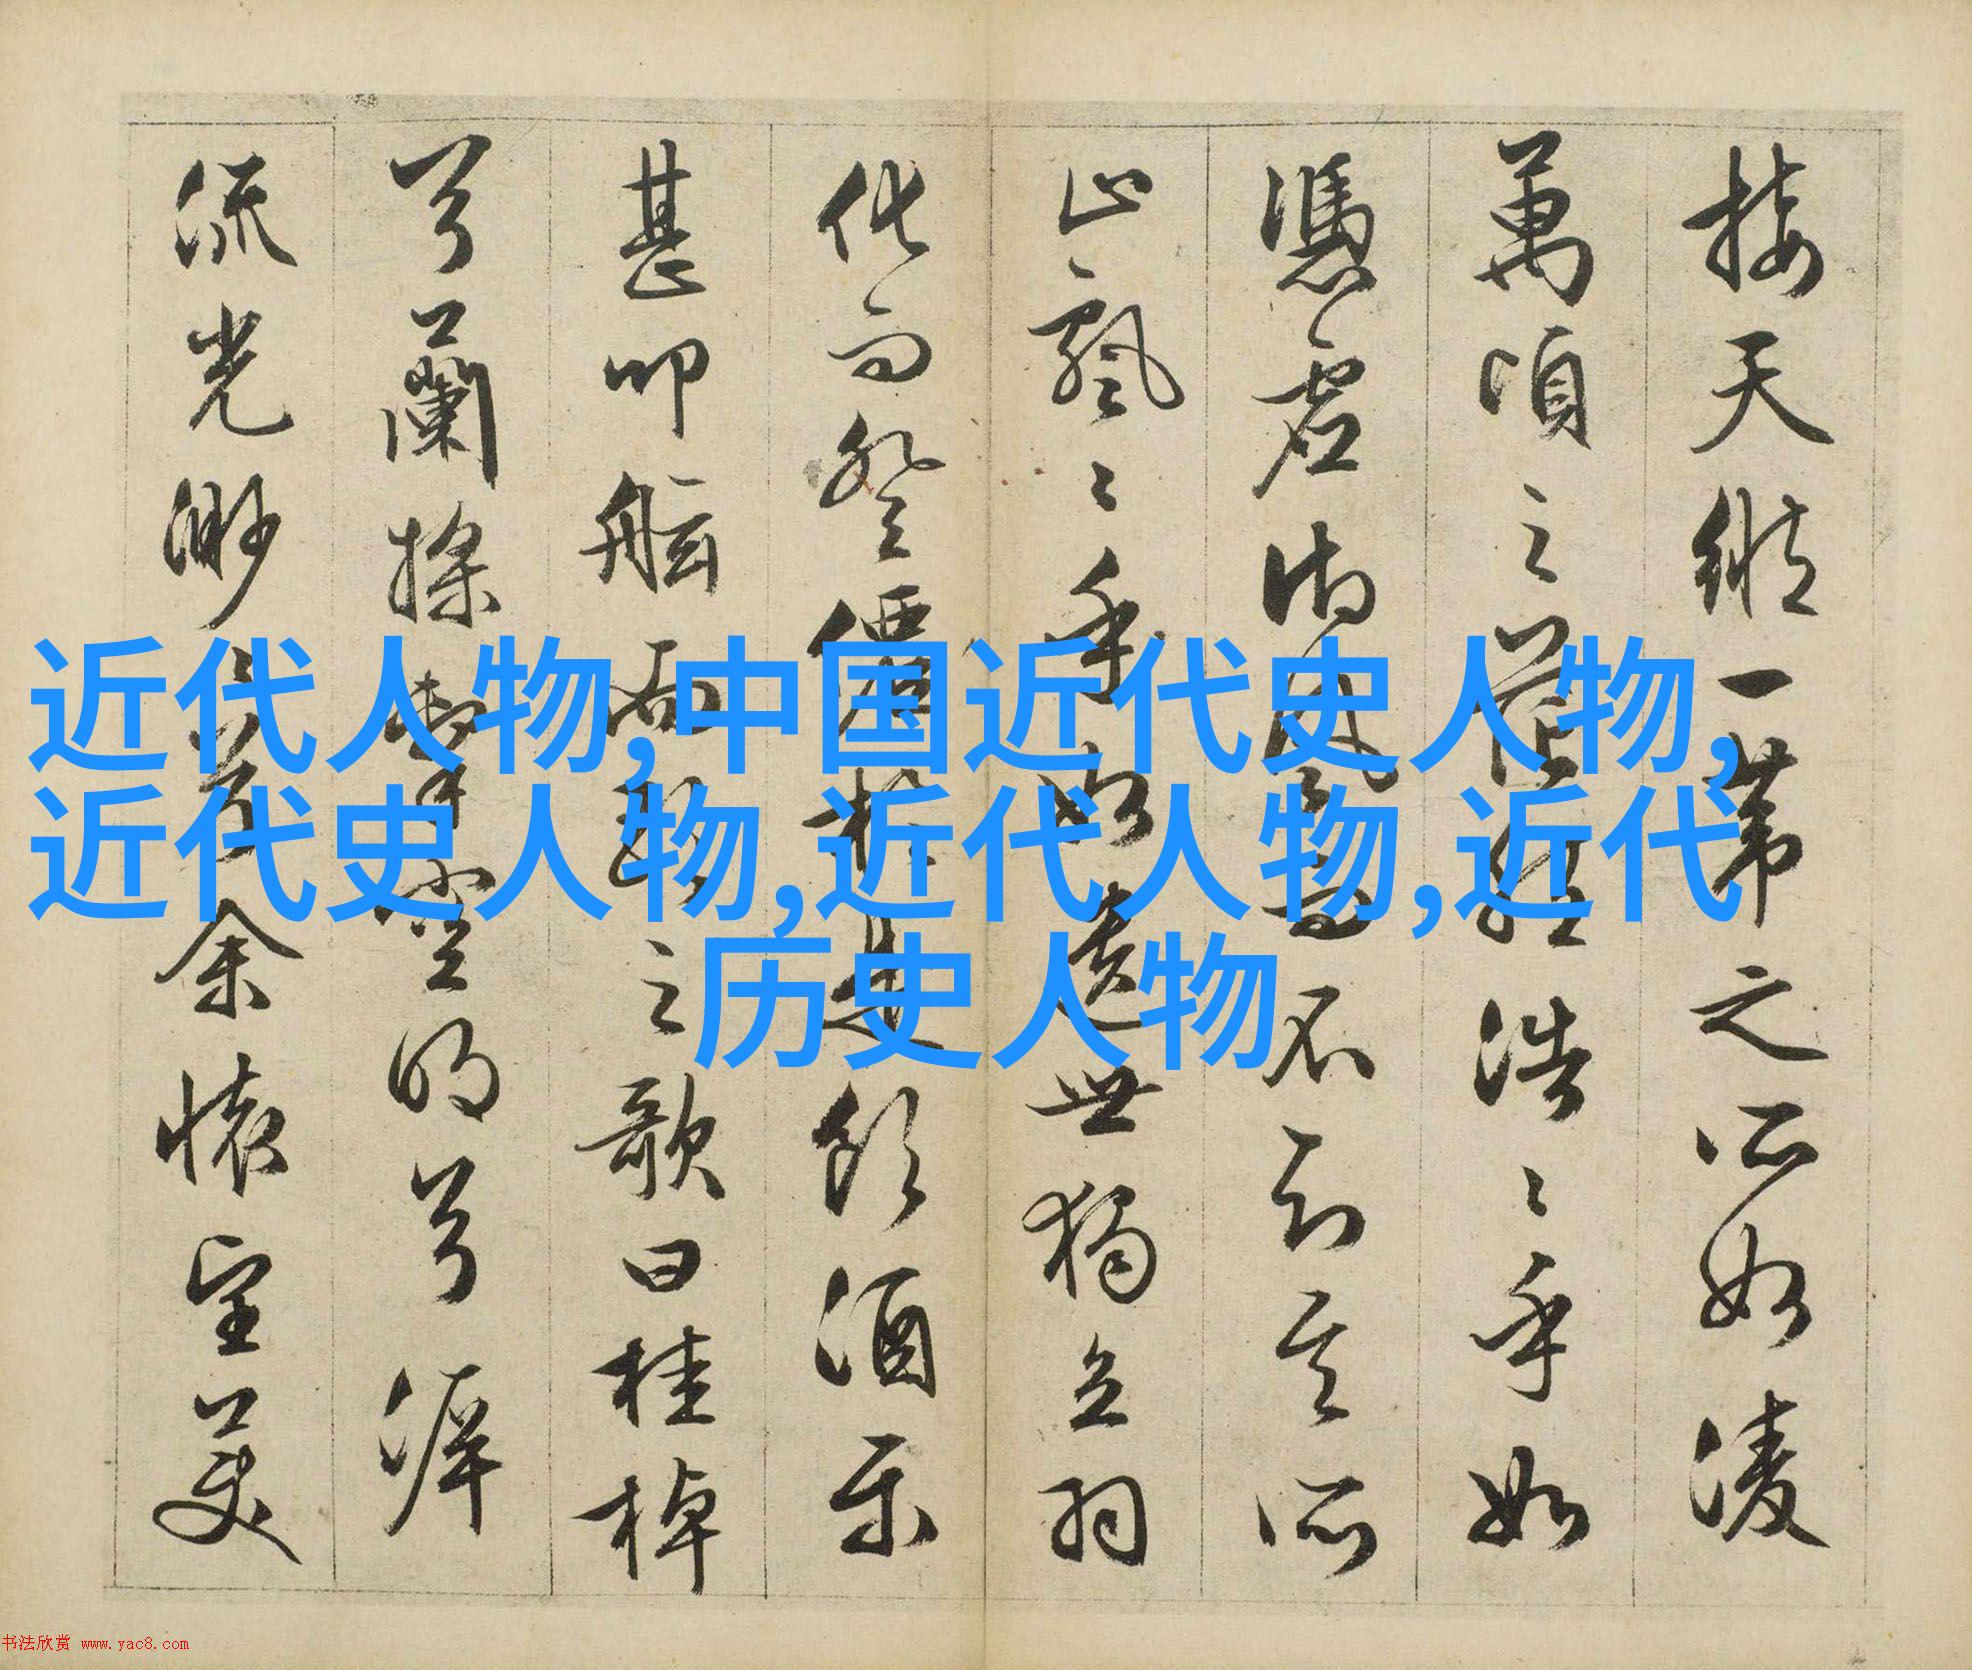 接天縱一葦之所如凌
萬頃之茫然浩〻乎如
憑虛御風而不知其所
止飄〻乎如遺世獨立羽
化而登僊於是飲酒樂
甚叩舷而歌之歌曰桂棹
兮蘭槳擊空明兮泝
流光渺〻兮余懷望美
近代人物,中国近代史人物,
近代史人物,近代人物,近代
历史人物
书法欣赏 www.yac8.com